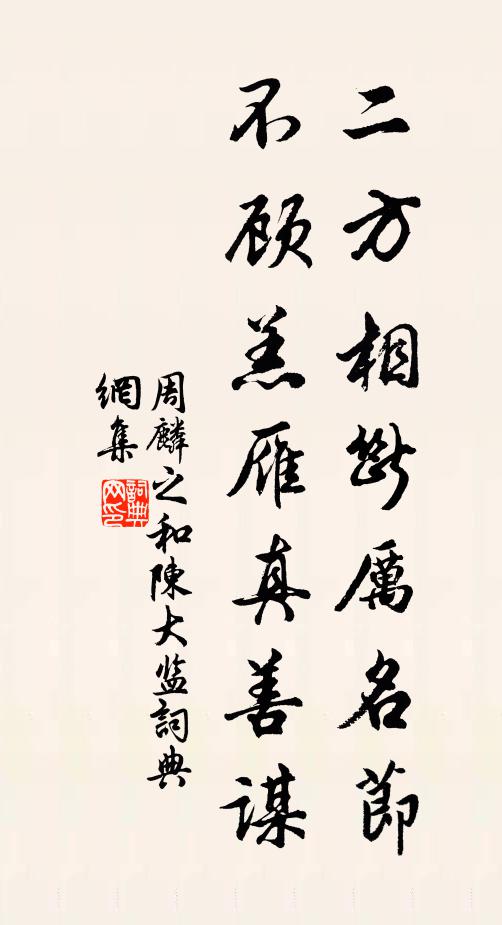 二方相斷厲名節
不顧羔雁真善謀
周麟之和陳大监詞典
網集
詞典
网印